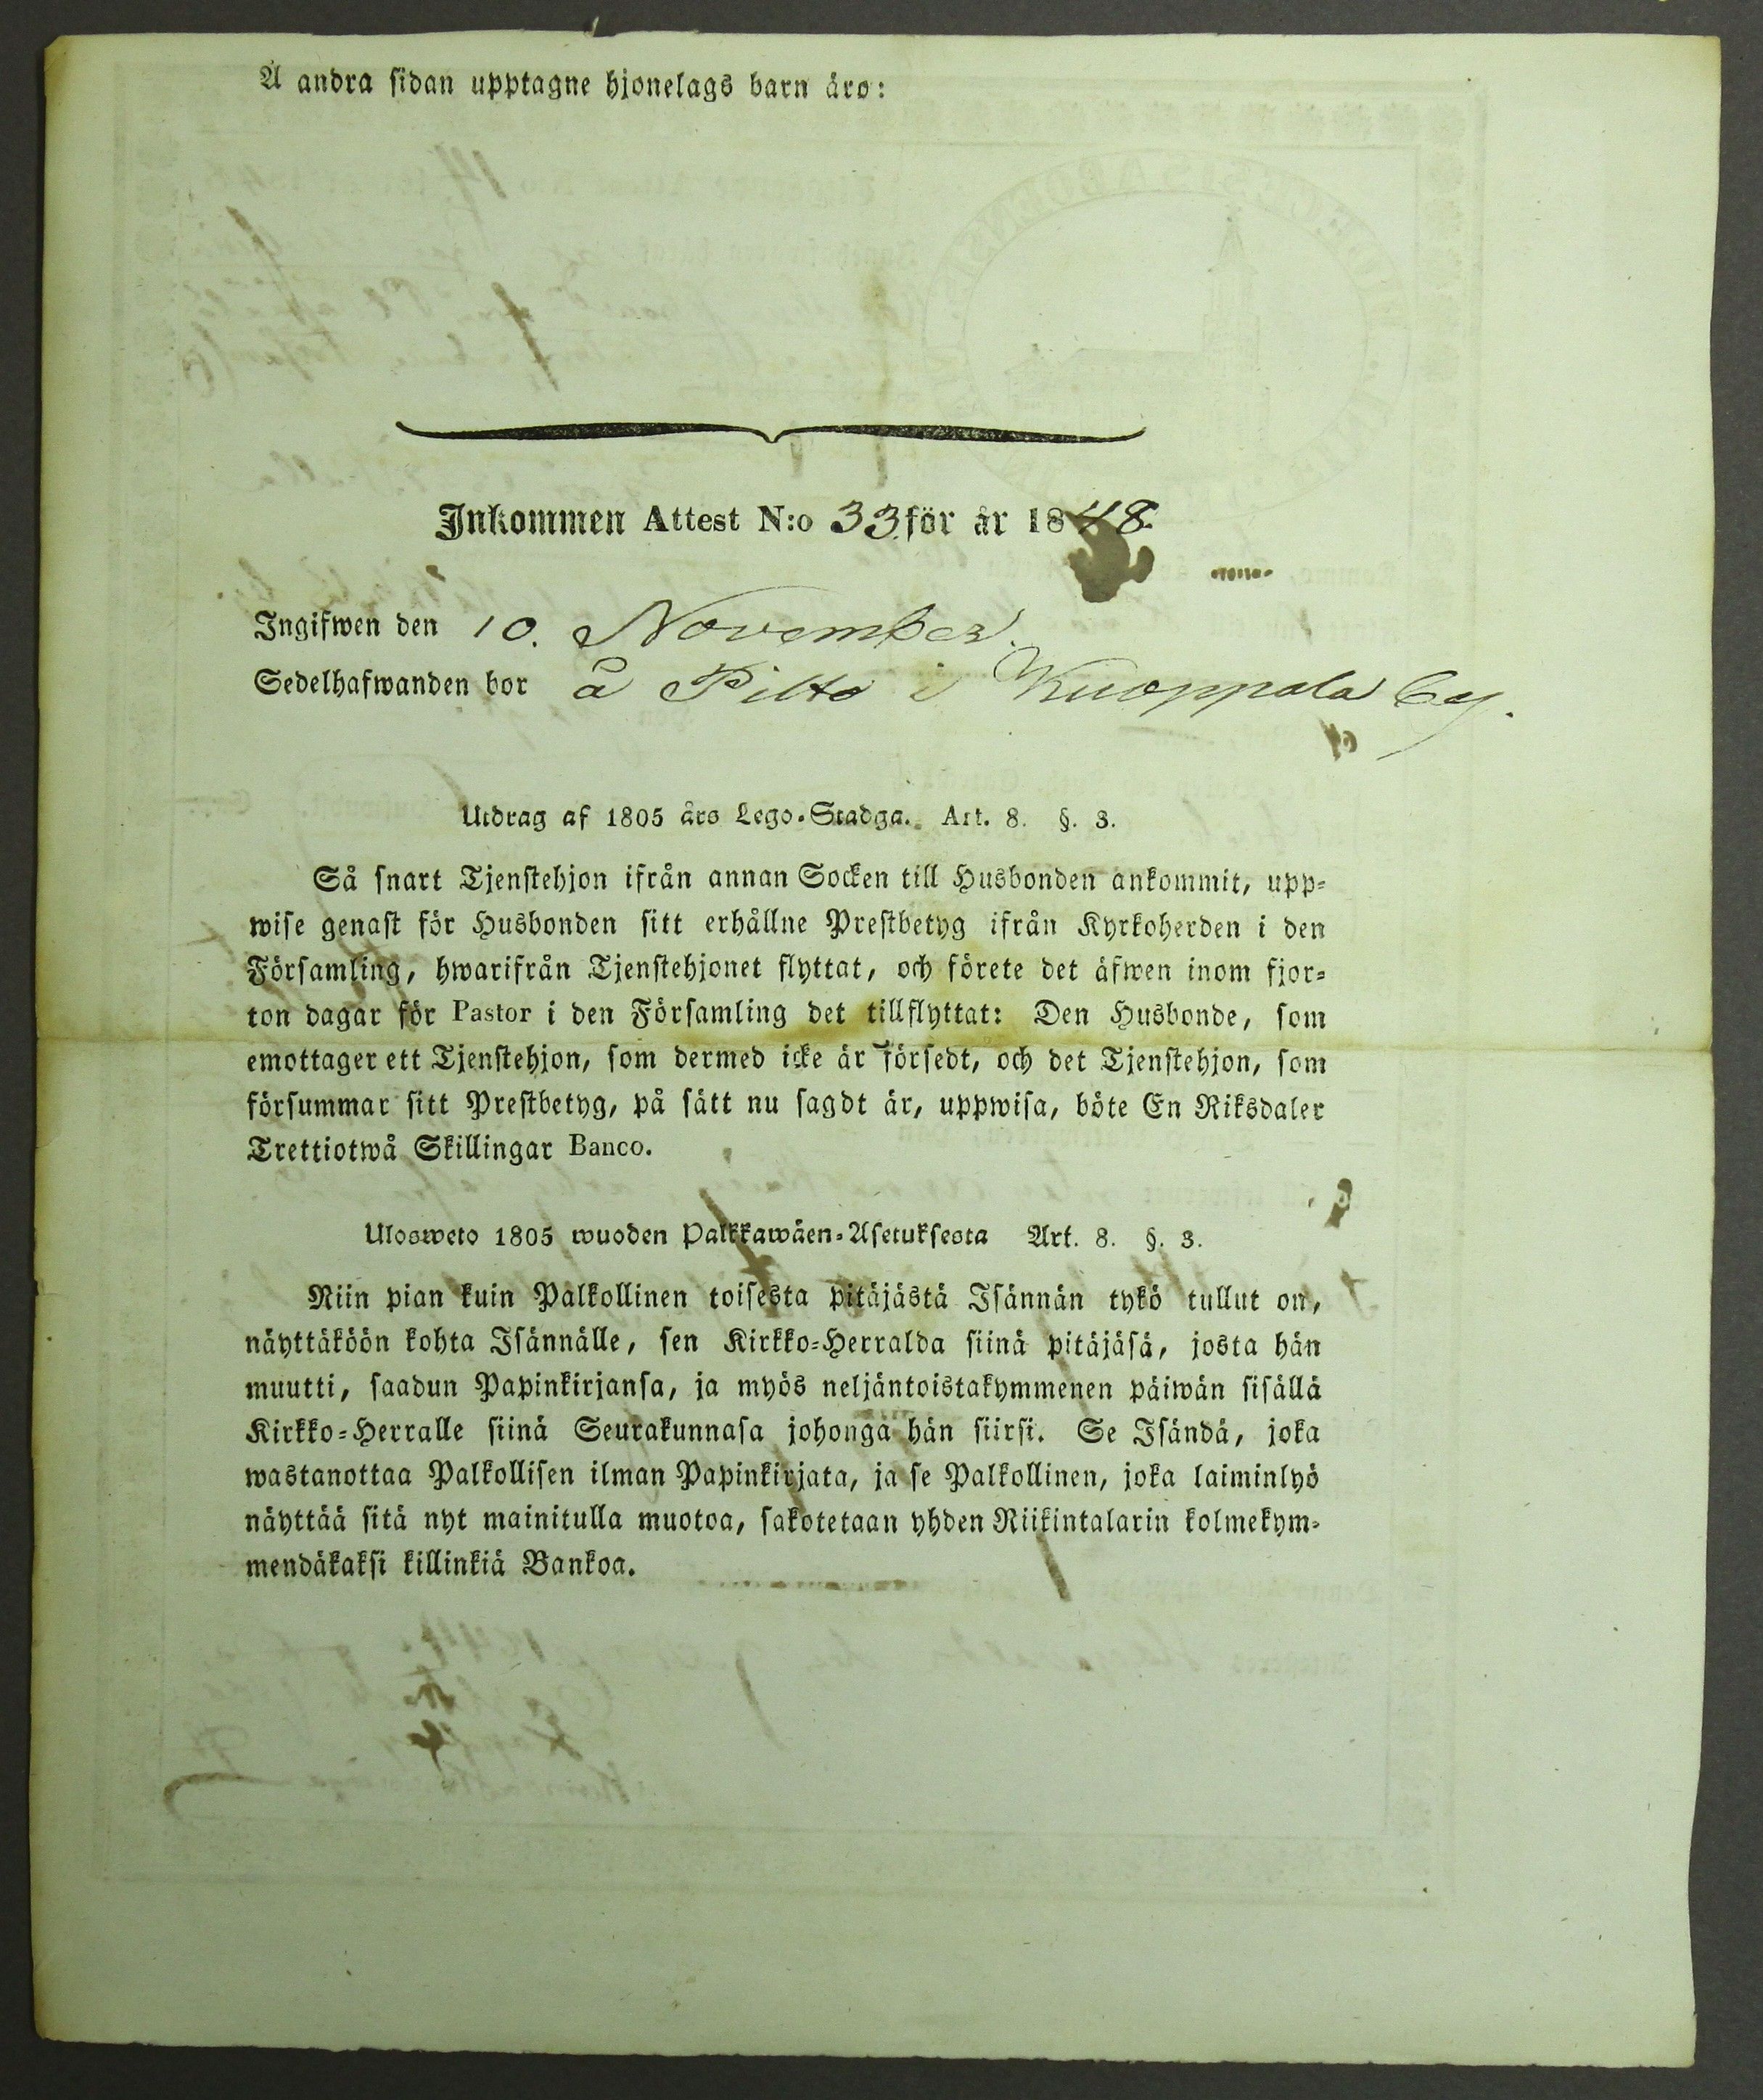 Å andra sidan upptagne hjonelags barn äro:
Inkommen Attest N:o 33. för år 1848.
Ingifwen den 10. November.
Sedelhafwanden bor å Piltto i Kuoppala by.
Utdrag af 1805 års Lego-Stadga. Art. 8. §. 3.
Så snart Tjenstehjon ifrån annan Socken till Husbonden ankommit, upp-
wise genast för Husbonden sitt erhållne Prestbetyg ifrån Kyrkoherden i den
Församling, hwarifrån Tjenstehjonet flyttat, och förete det äfwen inom fjor-
ton dagar för Pastor i den Församling det tillflyttat: Den Husbonde, som
emottager ett Tjenstehjon, som dermed icke är försedt, och det Tjenstehjon, som
försummar sitt Prestbetyg, på sätt nu sagdt är, uppwisa, böte En Riksdaler
Trettiotwå Skillingar Banco.
Ulosweto 1805 wuoden Palkkawäen-Asetuksesta Art. 8. §. 3.
Niin pian kuin Palkollinen toisesta pitäjästä Isännän tykö tullut on,
näyttäköön kohta Isännälle, sen Kirkko-Herralda siinä pitäjäsä, josta hän
muutti, saadun Papinkirjansa, ja myös neljäntoistakymmenen päiwän sisällä
Kirkko-Herralle siinä Seurakunnasa johonga hän siirsi. Se Isändä, joka
wastanottaa Palkollisen ilman Papinkirjata, ja se Palkollinen, joka laiminlyö
näyttää sitä nyt mainitulla muotoa, sakotetaan yhden Riikintalarin kolmekym-
mendäkaksi killinkiä Bankoa.